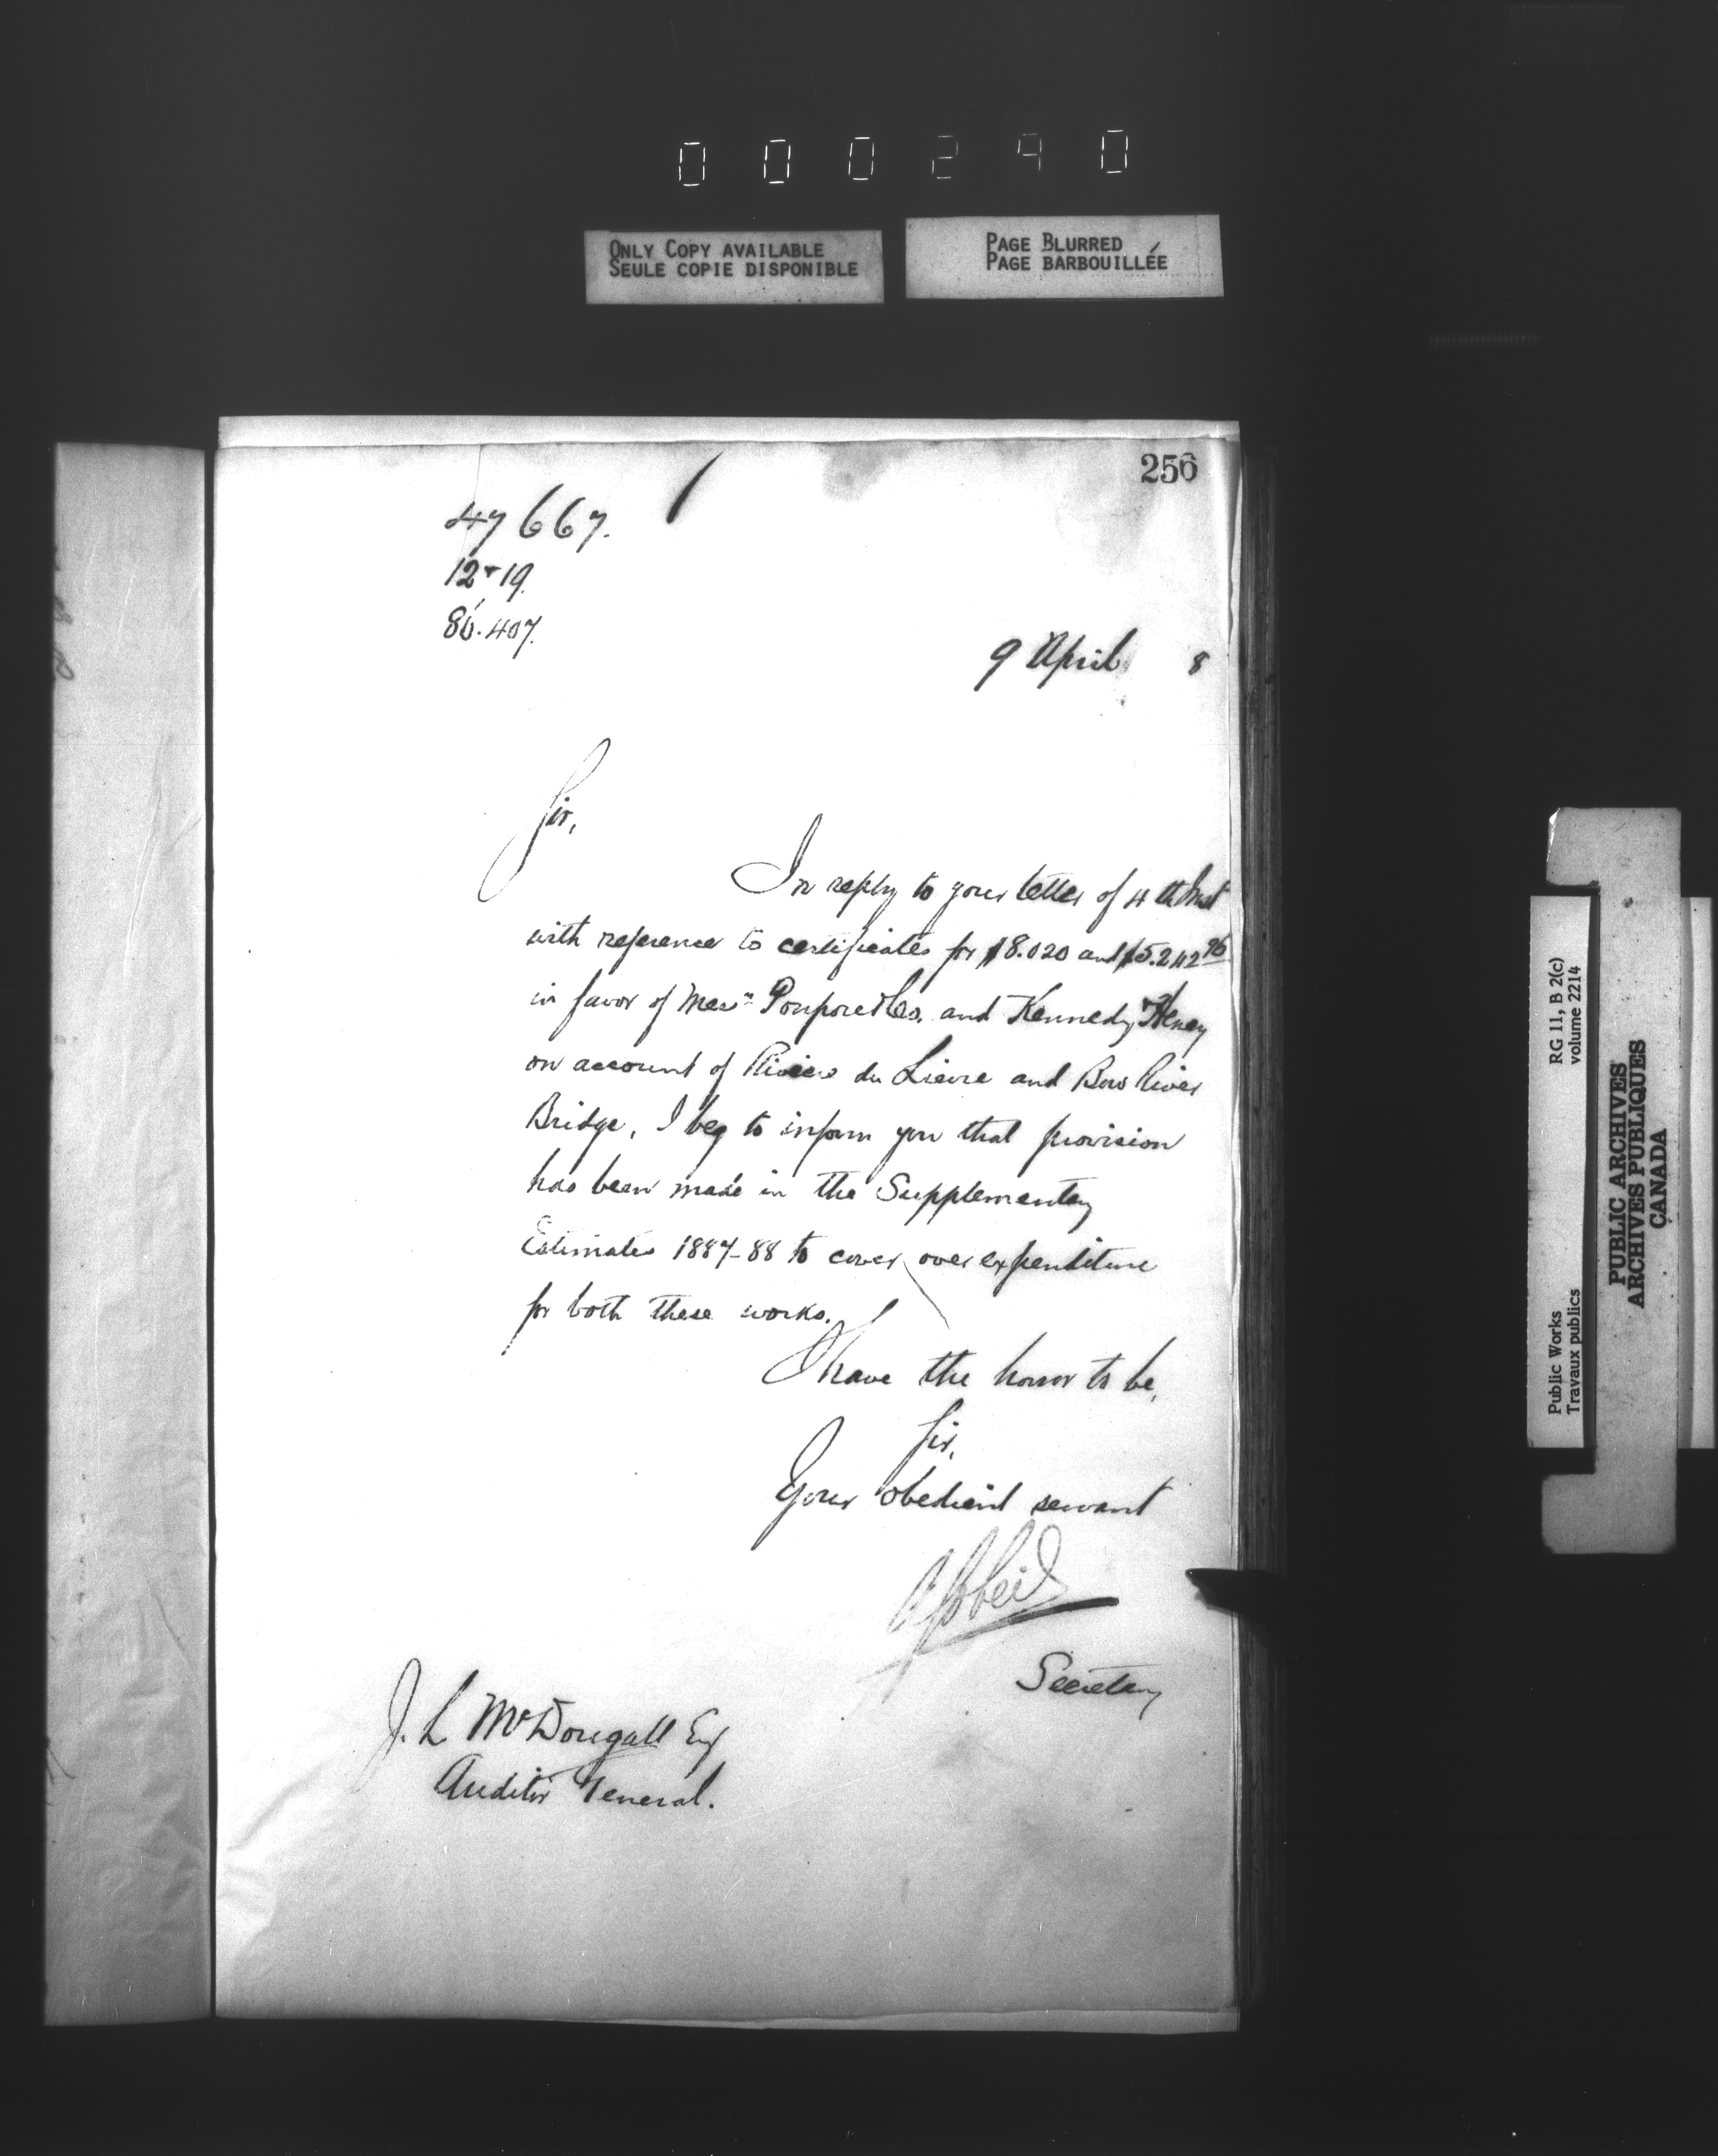 000290
ONLY COPY AVAILABLE
SEULE COPIE DISPONIBLE
PAGE BLURRED
PAGE BARBOUILLÉE
256
47667.
12-19.
86.407.
9 April 8
Sir,
In reply to your letter of 4th Inst
with reference to certificates for $8.020 and $5.242 96
in favor of Messrs and Kennedy Henry
on account of Riviere du Lievre and Bow River
Bridge, I beg to inform you that provision
has been made in the Supplementary
Estimates 1887-88 to cover over expenditure
for both these works.
I have the honor to be,
Sir,
Your obedient servant
Secretary
J. L McDougall Esq
Auditor General.
Public Works
Travaux publics
RG 11, B 2(c)
volume 2214
PUBLIC ARCHIVES
ARCHIVES PUBLIQUES
CANADA